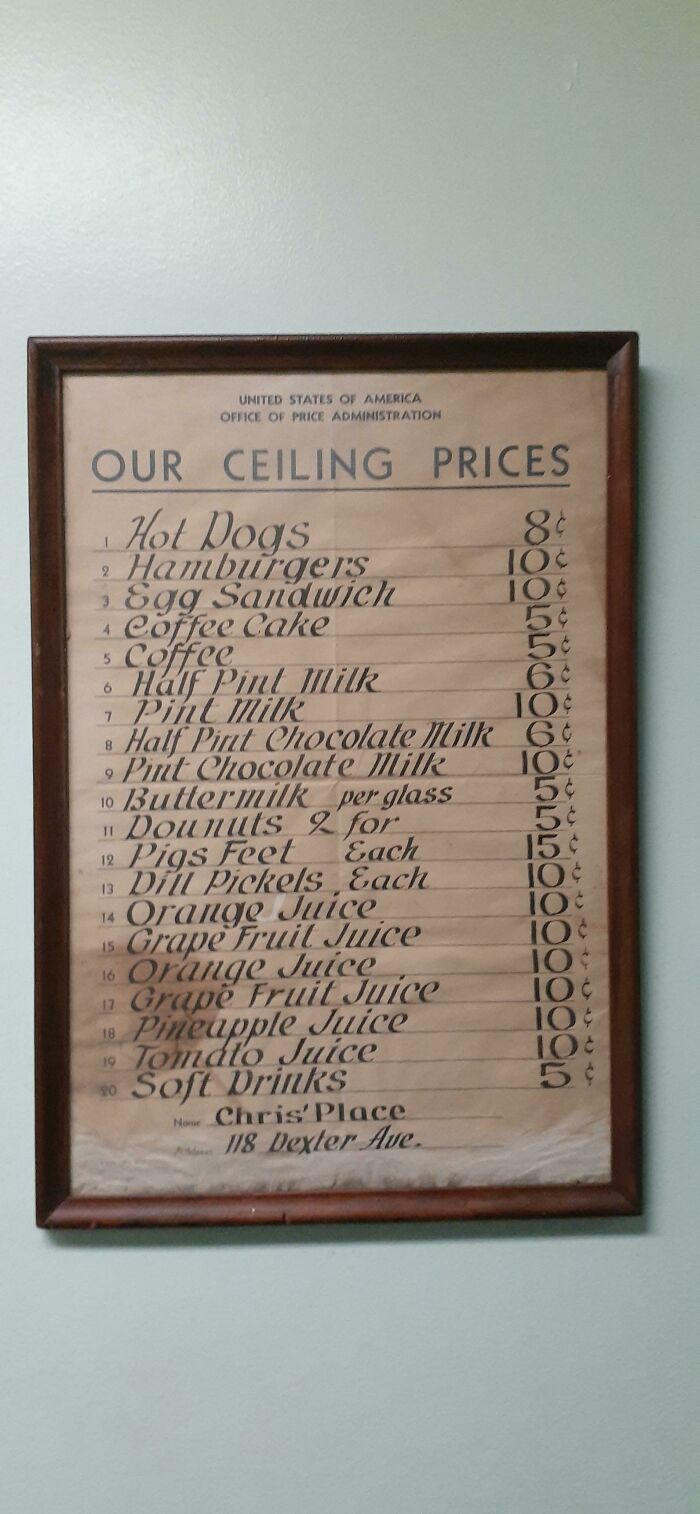 UNITED STATES OF AMERICA
OFFICE OF PRICE ADMINISTRATION
OUR CEILING PRICES
1 Hot Dogs 8¢
2 Hamburgers 10¢
3 Egg Sandwich 10¢
4 Coffee Cake 5¢
5 Coffee 5¢
6 Half Pint Milk 6¢
7 Pint Milk 10¢
8 Half Pint Chocolate Milk 6¢
9 Pint Chocolate Milk 10¢
10 Buttermilk per glass 5¢
11 Dounuts 2 for 5¢
12 Pigs Feet Each 15¢
13 Dill Pickels Each 10¢
14 Orange Juice 10¢
15 Grape Fruit Juice 10¢
16 Orange Juice 10¢
17 Grape Fruit Juice 10¢
18 Pineapple Juice 10¢
19 Tomato Juice 10¢
20 Soft Drinks 5¢
Name Chris' Place
Address 118 Dexter Ave.